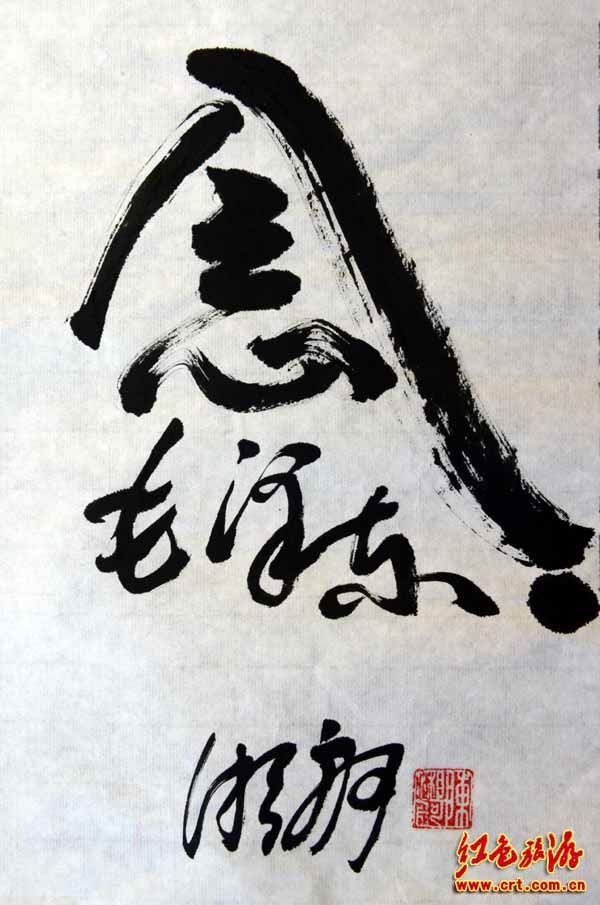 念
毛泽东
湘舸
红色旅游
www.crt.com.cn